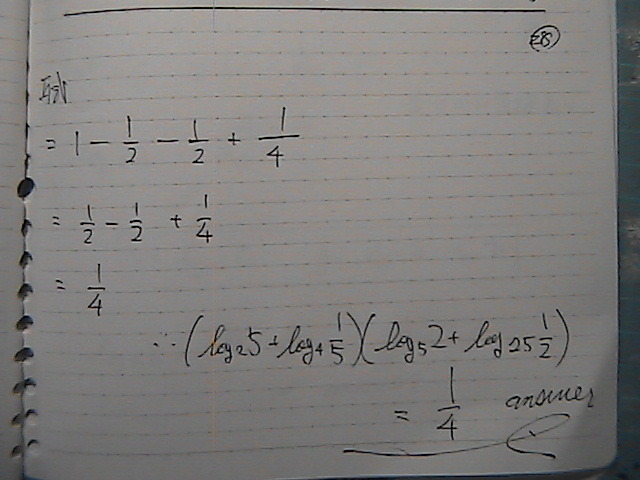 = 1 - 1/2 - 1/2 + 1/4
= 1/2 - 1/2 + 1/4
= 1/4
∴ (log₂5 + log₄ 1/5)(log₅2 + log₂₅ 1/2)
= 1/4 answer